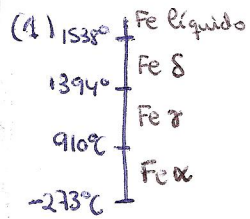 (1) 1538° Fe líquido
Fe δ
1394°
Fe γ
910℃
Fe α
-273℃